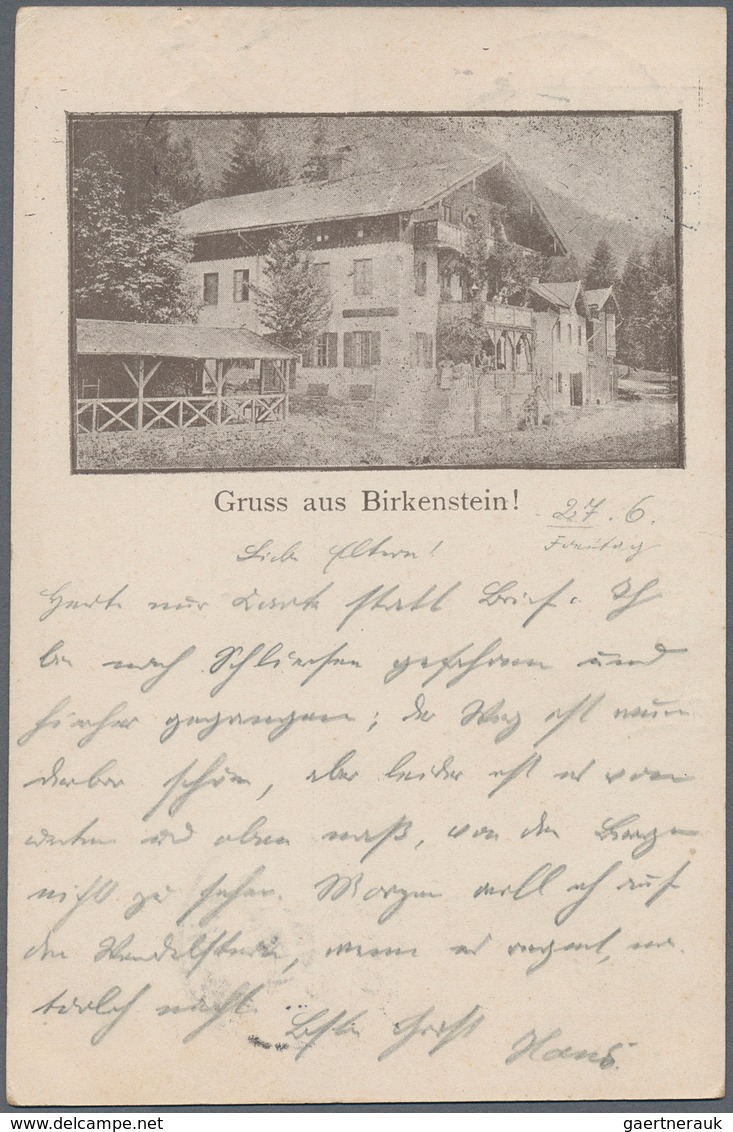 Gruss aus Birkenstein!
27.6.
Freitag
Liebe Eltern!
Heute nur Karte statt Brief. Ich
bin nach Schliersee gefahren und
hierher gegangen; der Weg ist wun
derbar schön, aber leider ist es von
unten und oben naß, von den Bergen
nichts zu sehen. Morgen will ich auf
den Wendelstein, wenn es regnet, na-
türlich nicht.
Beste Grüße Hans.
gaertnerauk